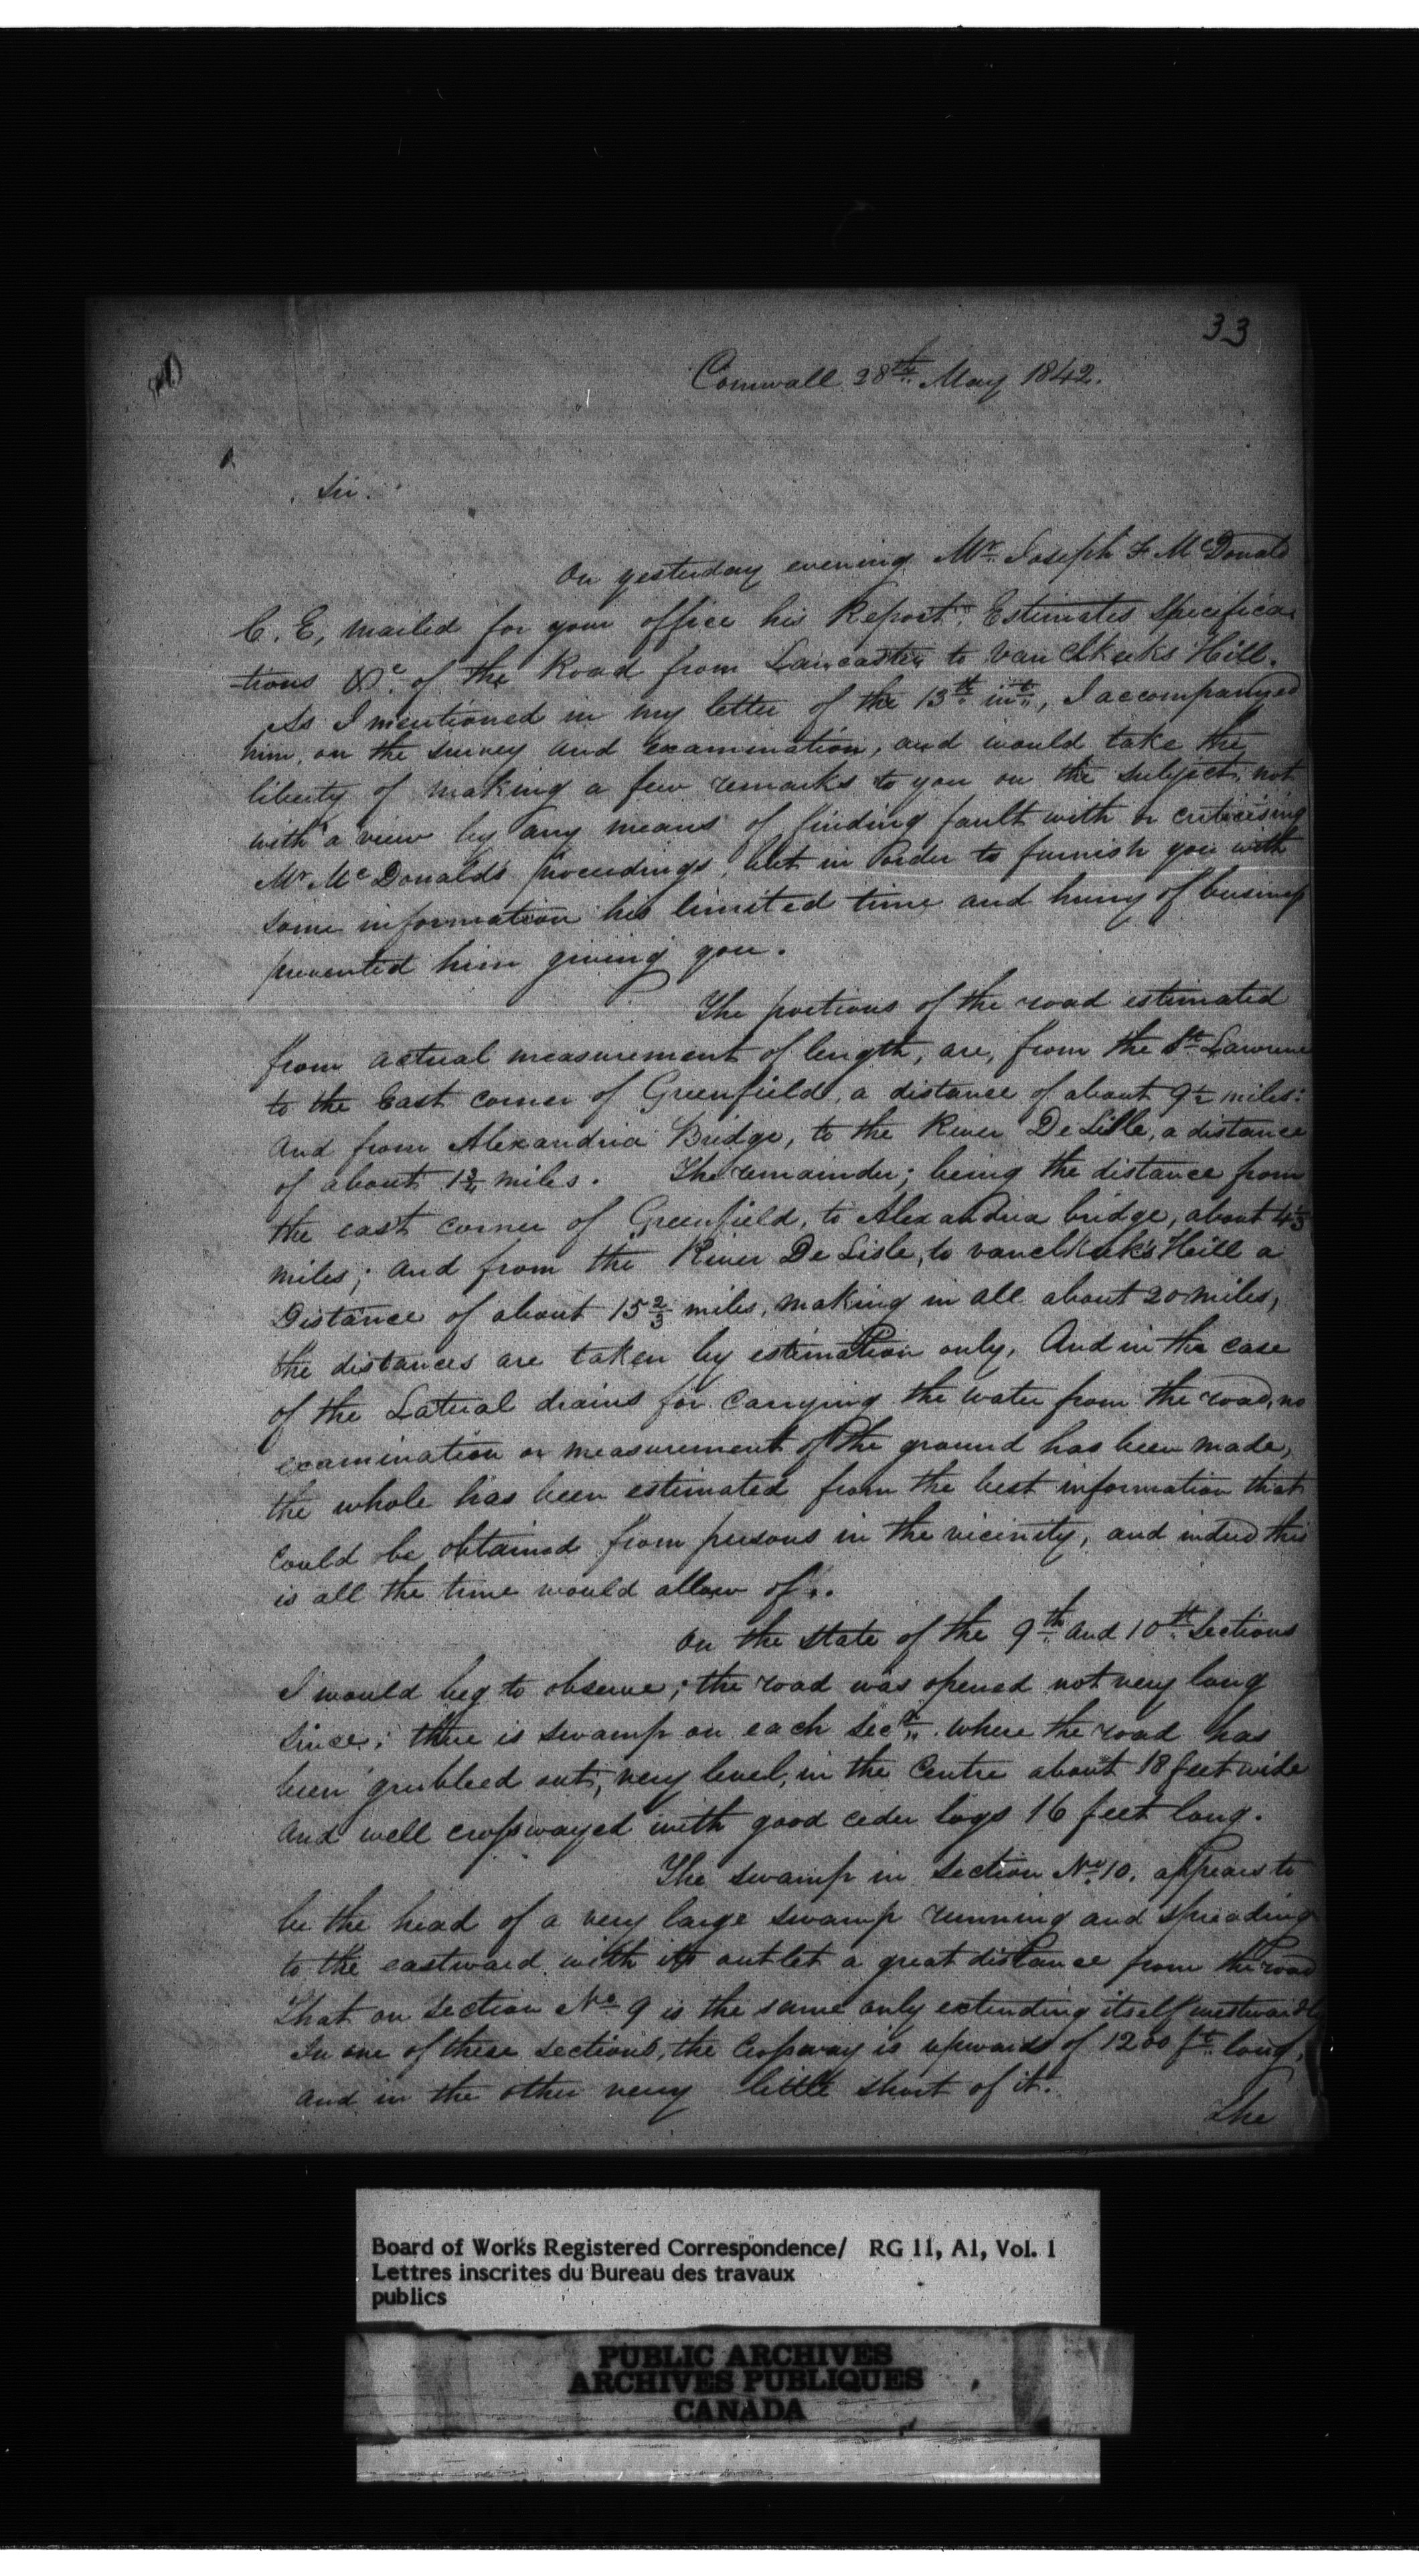 33
Cornwall 28th May 1842.
Sir.
On yesterday evening Mr. Joseph F. McDonald
C. E, mailed for your office his Report, Estimates Specifica-
tions &c. of the Road from Lancaster to Van Cleeks Hill.
As I mentioned in my letter of the 13th inst, I accompanyed
him, on the survey and examination, and would take the
liberty of making a few remarks to you on the subject, not
with a view by any means of finding fault with or criticising
Mr McDonald's proceedings, but in order to furnish you with
some information his limited time and hurry of business
prevented him giving you.
The portions of the road estimated
from actual measurement of length, are, from the St. Lawrence
to the East corner of Greenfield, a distance of about 9½ miles:
And from Alexandria Bridge, to the River De Lisle, a distance
of about 1¾ miles. The remainder; being the distance from
the east corner of Greenfield, to Alexandria bridge, about 4⅓
miles; And from the River De Lisle, to vancleek's Hill a
Distance of about 15⅔ miles, making in all about 20 miles,
the distances are taken by estimation only, And in the case
of the Lateral drains for carrying the water from the road, no
examination or measurement of the ground has been made,
the whole has been estimated from the best information that
could be obtained from persons in the vicinity, and indeed this
is all the time would allow of.
On the state of the 9th and 10th Sections
I would beg to observe; the road was opened not very long
since; there is swamp on each Secn. where the road has
been grubbed out, very level, in the Centre about 18 feet wide
And well crosswayed with good ceder logs 16 feet long.
The swamp in Section No. 10. appears to
be the head of a very large swamp running and spreading
to the eastward with its outlet a great distance from the road
That on Section No. 9 is the same only extending itself westwardly
In one of these sections, the Crossway is upwards of 1200 ft. long,
and in the other very little short of it.
The
Board of Works Registered Correspondence/ RG 11, A1, Vol. 1
Lettres inscrites du Bureau des travaux
publics
PUBLIC ARCHIVES
ARCHIVES PUBLIQUES
CANADA